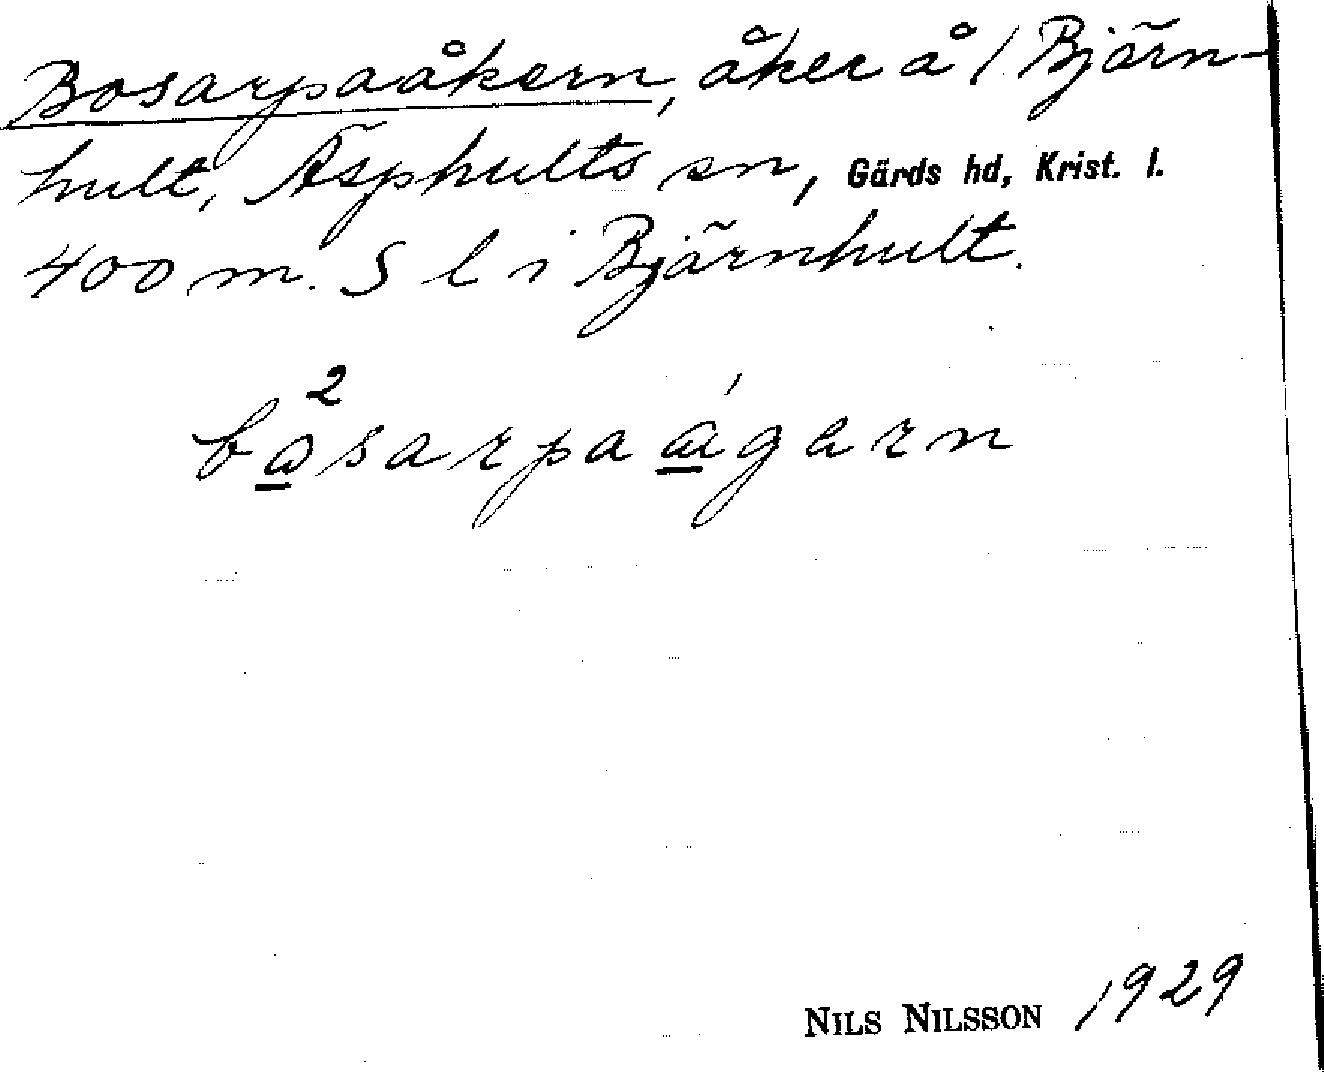 Bosarpaåkern, åker å 1 Bjärn-
hult, Äsphults sn, Gärds hd, Krist. l.
400 m. S l i Bjärnhult.
2
båsarpaågarn
NILS NILSSON 1929